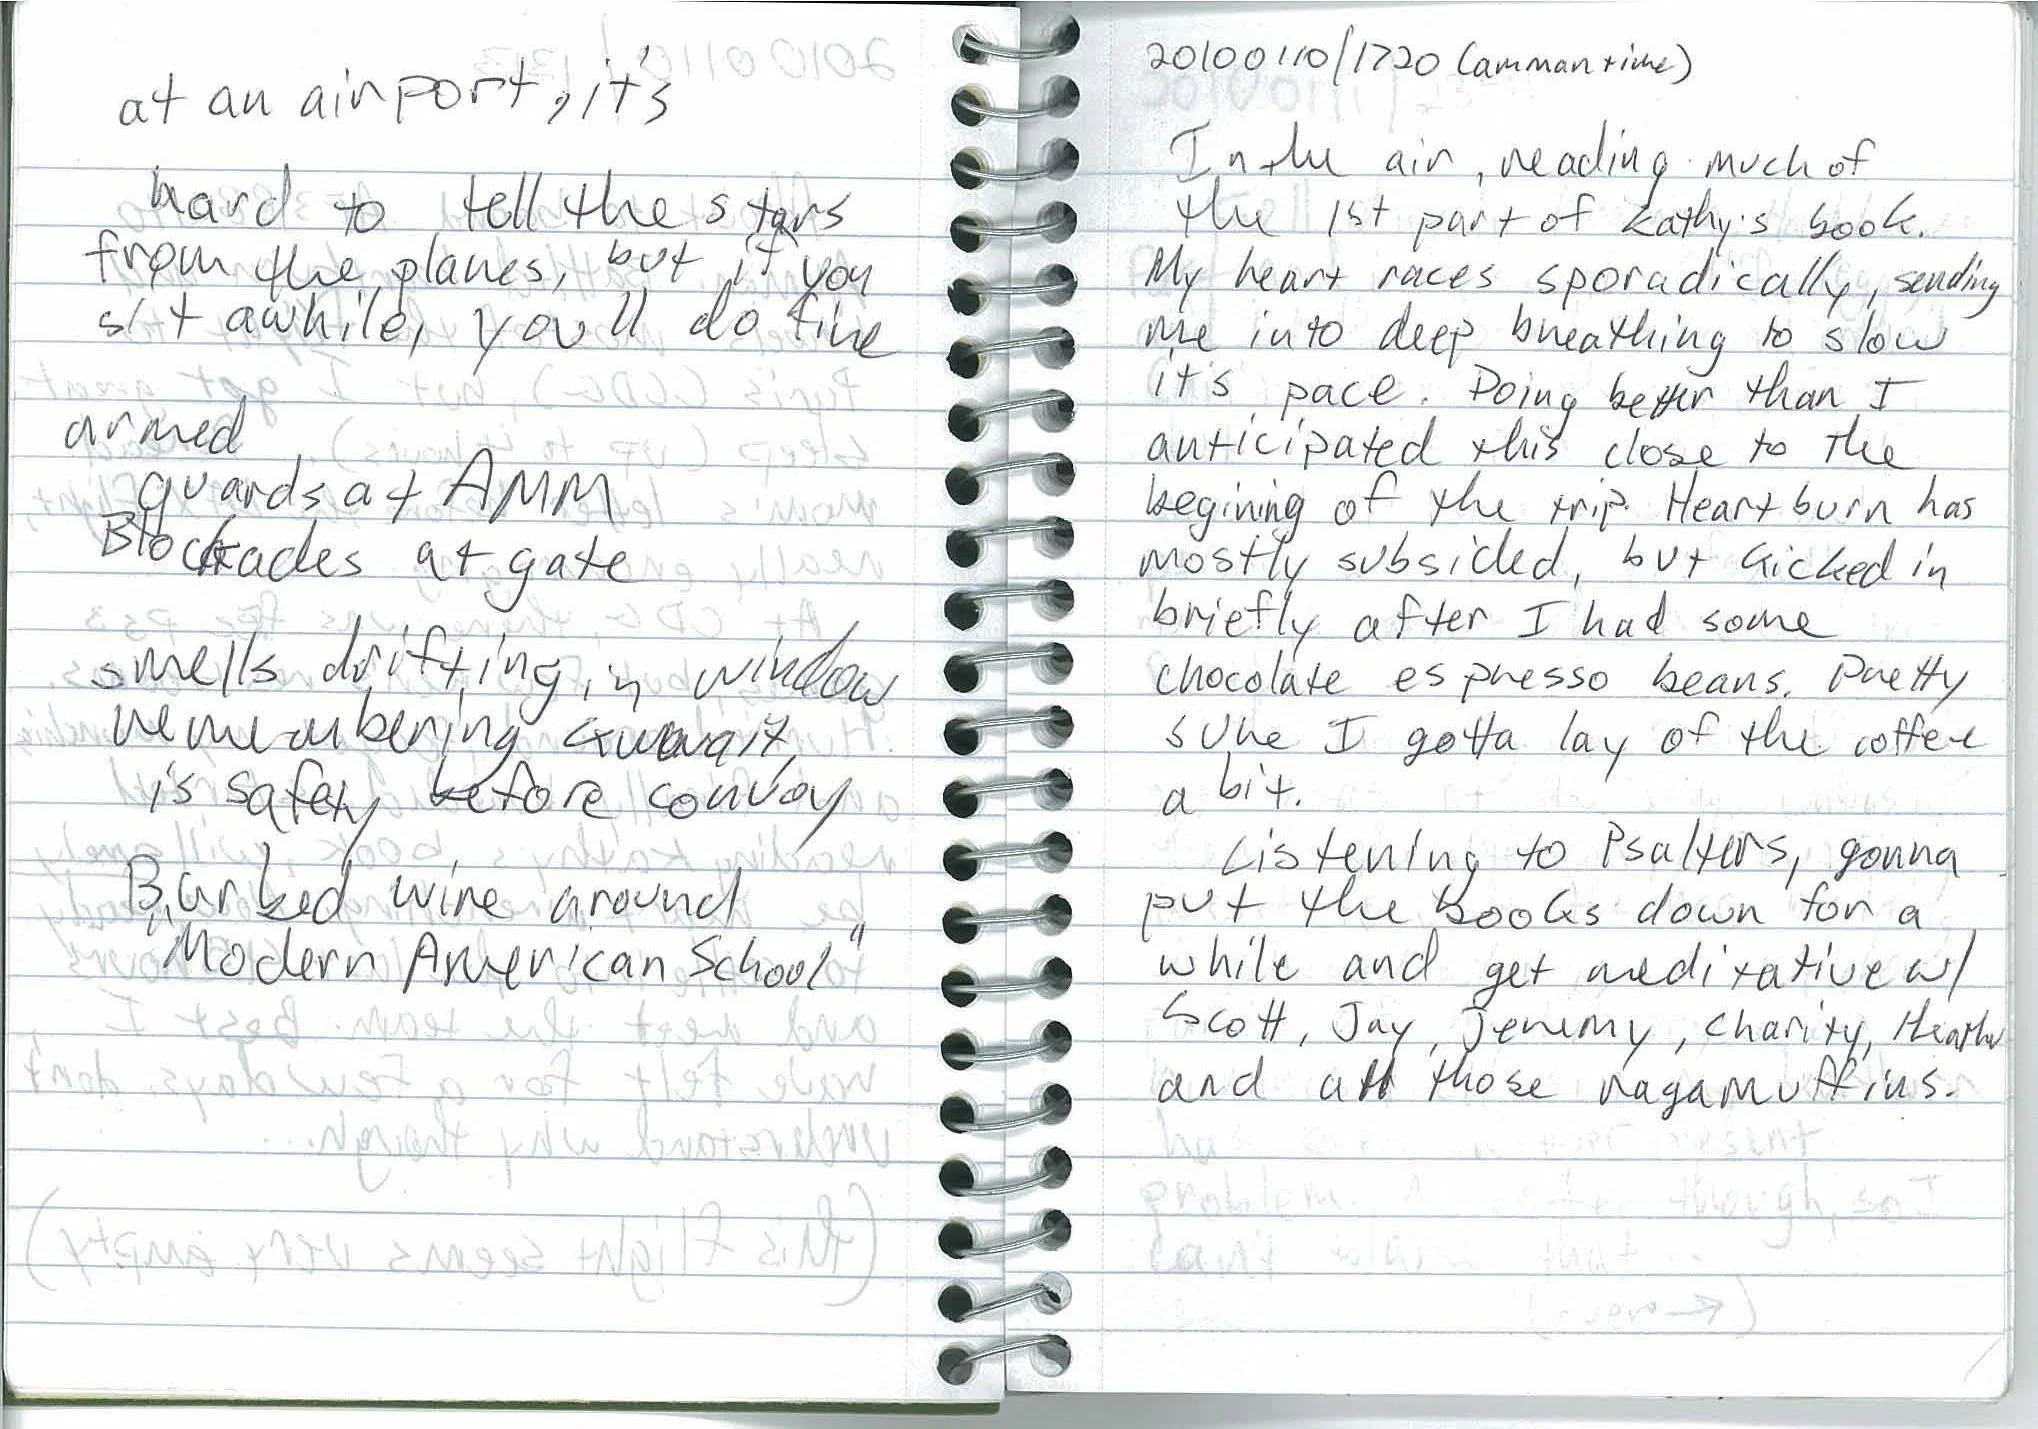 at an airport, it's
hard to tell the stars
from the planes, but if you
sit awhile, you'll do fine
armed
guards at AMM
Blockades at gate
smells drifting in window
remembering Kuwait,
is safety before convoy
Barbed wire around
"Modern American School"
20100110/1720 (amman time)
In the air, reading much of
the 1st part of Kathy's book.
My heart races sporadically, sending
me into deep breathing to slow
it's pace. Doing better than I
anticipated this close to the
begining of the trip. Heartburn has
mostly subsided, but kicked in
briefly after I had some
chocolate espresso beans. Pretty
sure I gotta lay of the coffee
a bit.
Listening to Psalters, gonna
put the books down for a
while and get meditative w/
Scott, Jay, Jeremy, Charity, Heather
and all those ragamuffins.